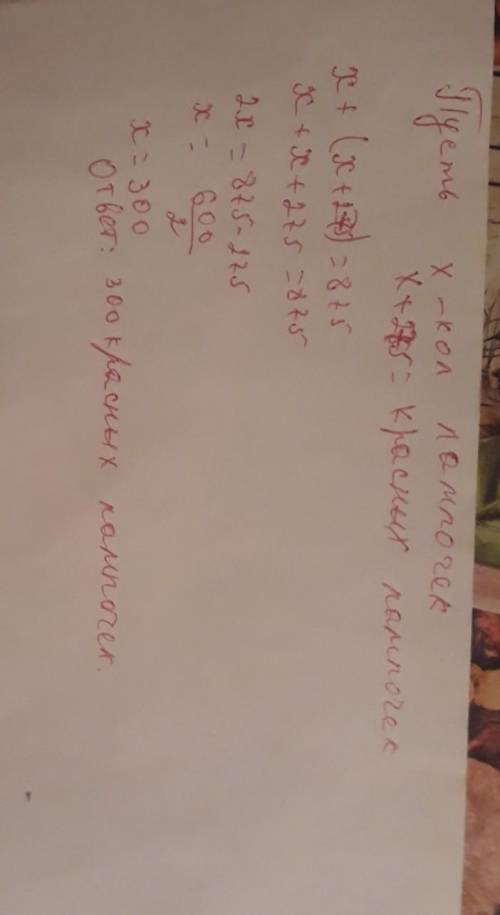 Пусть x - кол лампочек
x + 275 = красных лампочек
x + (x + 275) = 875
x + x + 275 = 875
2x = 875 - 275
x = 600/2
x = 300
Ответ: 300 красных лампочек.